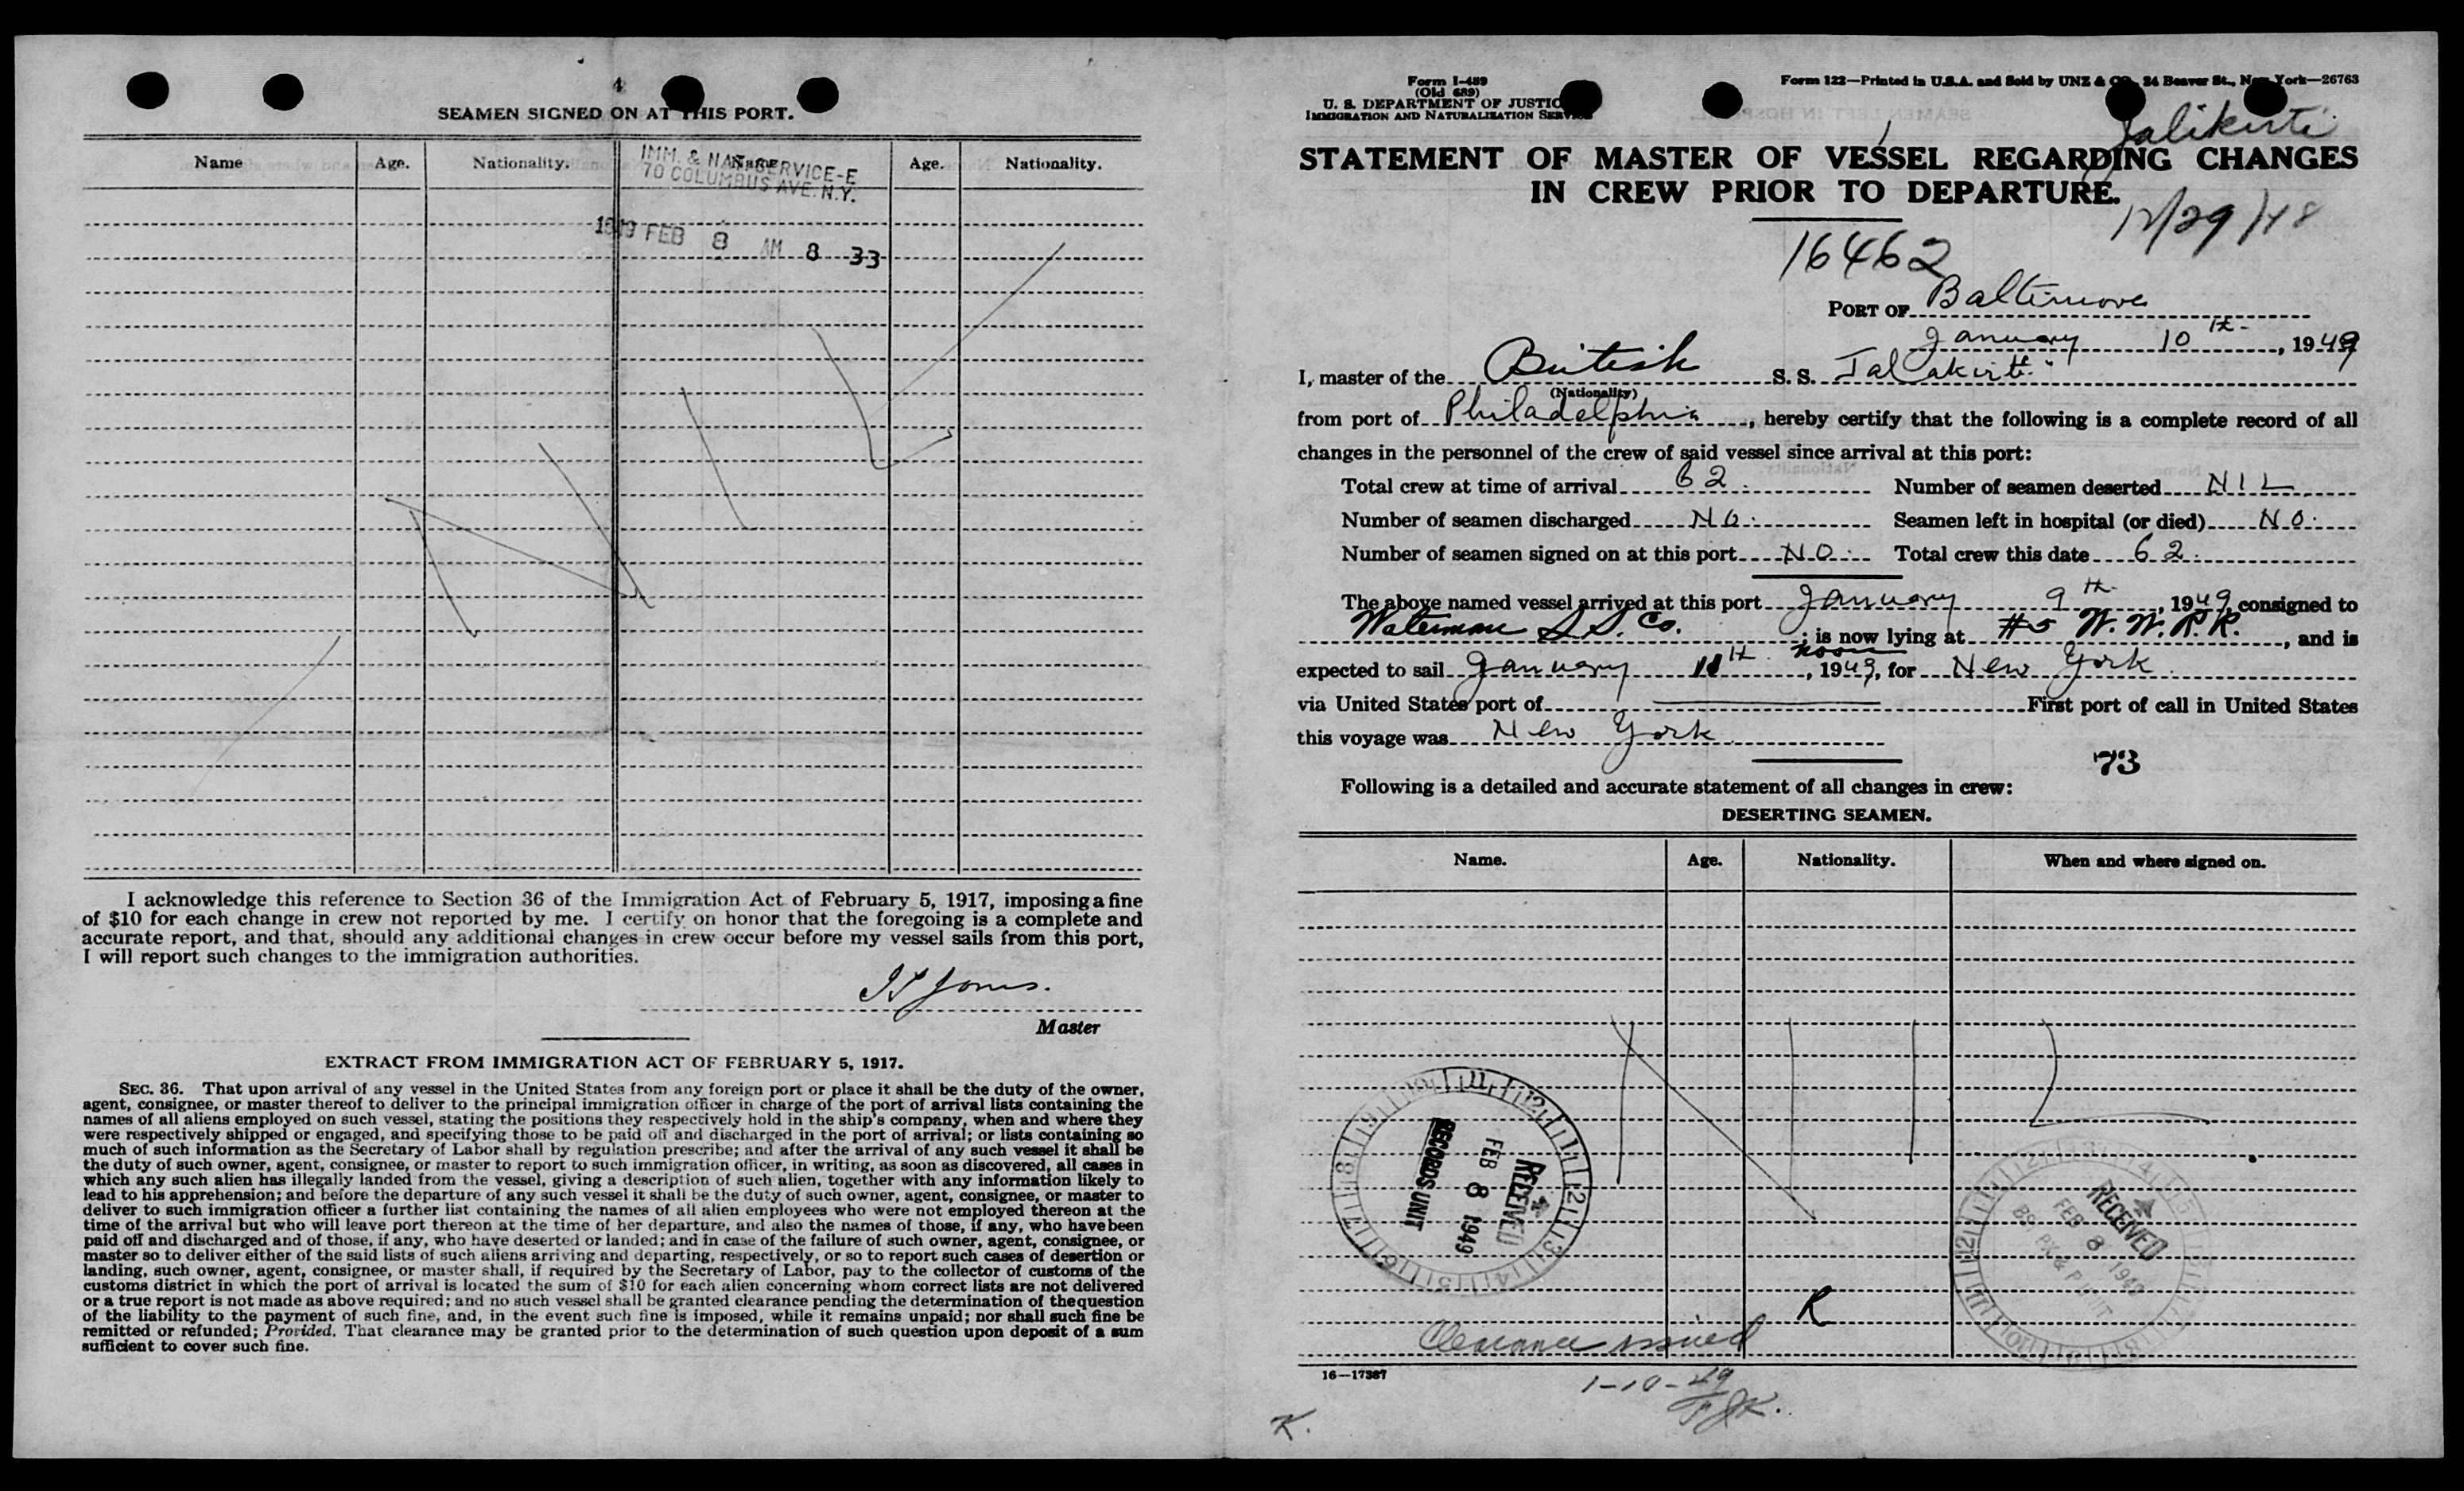 4
SEAMEN SIGNED ON AT THIS PORT.
Name Age. Nationality. Name Age. Nationality.
IMM. & NAT. SERVICE-E
70 COLUMBUS AVE. N.Y.
1949 FEB 8 AM 8 33
I acknowledge this reference to Section 36 of the Immigration Act of February 5, 1917, imposing a fine
of $10 for each change in crew not reported by me. I certify on honor that the foregoing is a complete and
accurate report, and that, should any additional changes in crew occur before my vessel sails from this port,
I will report such changes to the immigration authorities.
Jones.
Master
EXTRACT FROM IMMIGRATION ACT OF FEBRUARY 5, 1917.
SEC. 36. That upon arrival of any vessel in the United States from any foreign port or place it shall be the duty of the owner,
agent, consignee, or master thereof to deliver to the principal immigration officer in charge of the port of arrival lists containing the
names of all aliens employed on such vessel, stating the positions they respectively hold in the ship's company, when and where they
were respectively shipped or engaged, and specifying those to be paid off and discharged in the port of arrival; or lists containing so
much of such information as the Secretary of Labor shall by regulation prescribe; and after the arrival of any such vessel it shall be
the duty of such owner, agent, consignee, or master to report to such immigration officer, in writing, as soon as discovered, all cases in
which any such alien has illegally landed from the vessel, giving a description of such alien, together with any information likely to
lead to his apprehension; and before the departure of any such vessel it shall be the duty of such owner, agent, consignee, or master to
deliver to such immigration officer a further list containing the names of all alien employees who were not employed thereon at the
time of the arrival but who will leave port thereon at the time of her departure, and also the names of those, if any, who have been
paid off and discharged and of those, if any, who have deserted or landed; and in case of the failure of such owner, agent, consignee, or
master so to deliver either of the said lists of such aliens arriving and departing, respectively, or so to report such cases of desertion or
landing, such owner, agent, consignee, or master shall, if required by the Secretary of Labor, pay to the collector of customs of the
customs district in which the port of arrival is located the sum of $10 for each alien concerning whom correct lists are not delivered
or a true report is not made as above required; and no such vessel shall be granted clearance pending the determination of the question
of the liability to the payment of such fine, and, in the event such fine is imposed, while it remains unpaid; nor shall such fine be
remitted or refunded; Provided, That clearance may be granted prior to the determination of such question upon deposit of a sum
sufficient to cover such fine.
Form I-489
(Old 689)
U. S. DEPARTMENT OF JUSTICE
IMMIGRATION AND NATURALIZATION SERVICE
Form 122—Printed in U.S.A. and Sold by UNZ & CO., 24 Beaver St., New York—26763
Jalikirti
STATEMENT OF MASTER OF VESSEL REGARDING CHANGES
IN CREW PRIOR TO DEPARTURE.
12/29/48
16462
PORT OF Baltimore
January 10th, 1949
I, master of the British S. S. "Jalakirti"
(Nationality)
from port of Philadelphia, hereby certify that the following is a complete record of all
changes in the personnel of the crew of said vessel since arrival at this port:
Total crew at time of arrival 62. Number of seamen deserted NIL
Number of seamen discharged NO. Seamen left in hospital (or died) NO.
Number of seamen signed on at this port NO. Total crew this date 62.
The above named vessel arrived at this port January 9th, 1949, consigned to
Waterman S.S. Co.; is now lying at #5 W. W. R. R., and is
expected to sail January 11th noon, 1949, for New York.
via United States port of First port of call in United States
this voyage was New York
73
Following is a detailed and accurate statement of all changes in crew:
DESERTING SEAMEN.
Name. Age. Nationality. When and where signed on.
NIL
RECEIVED
FEB 8 1949
RECORDS UNIT
RECEIVED
FEB 8 1949
R
Clearance issued
16—17387
1-10-49
K.